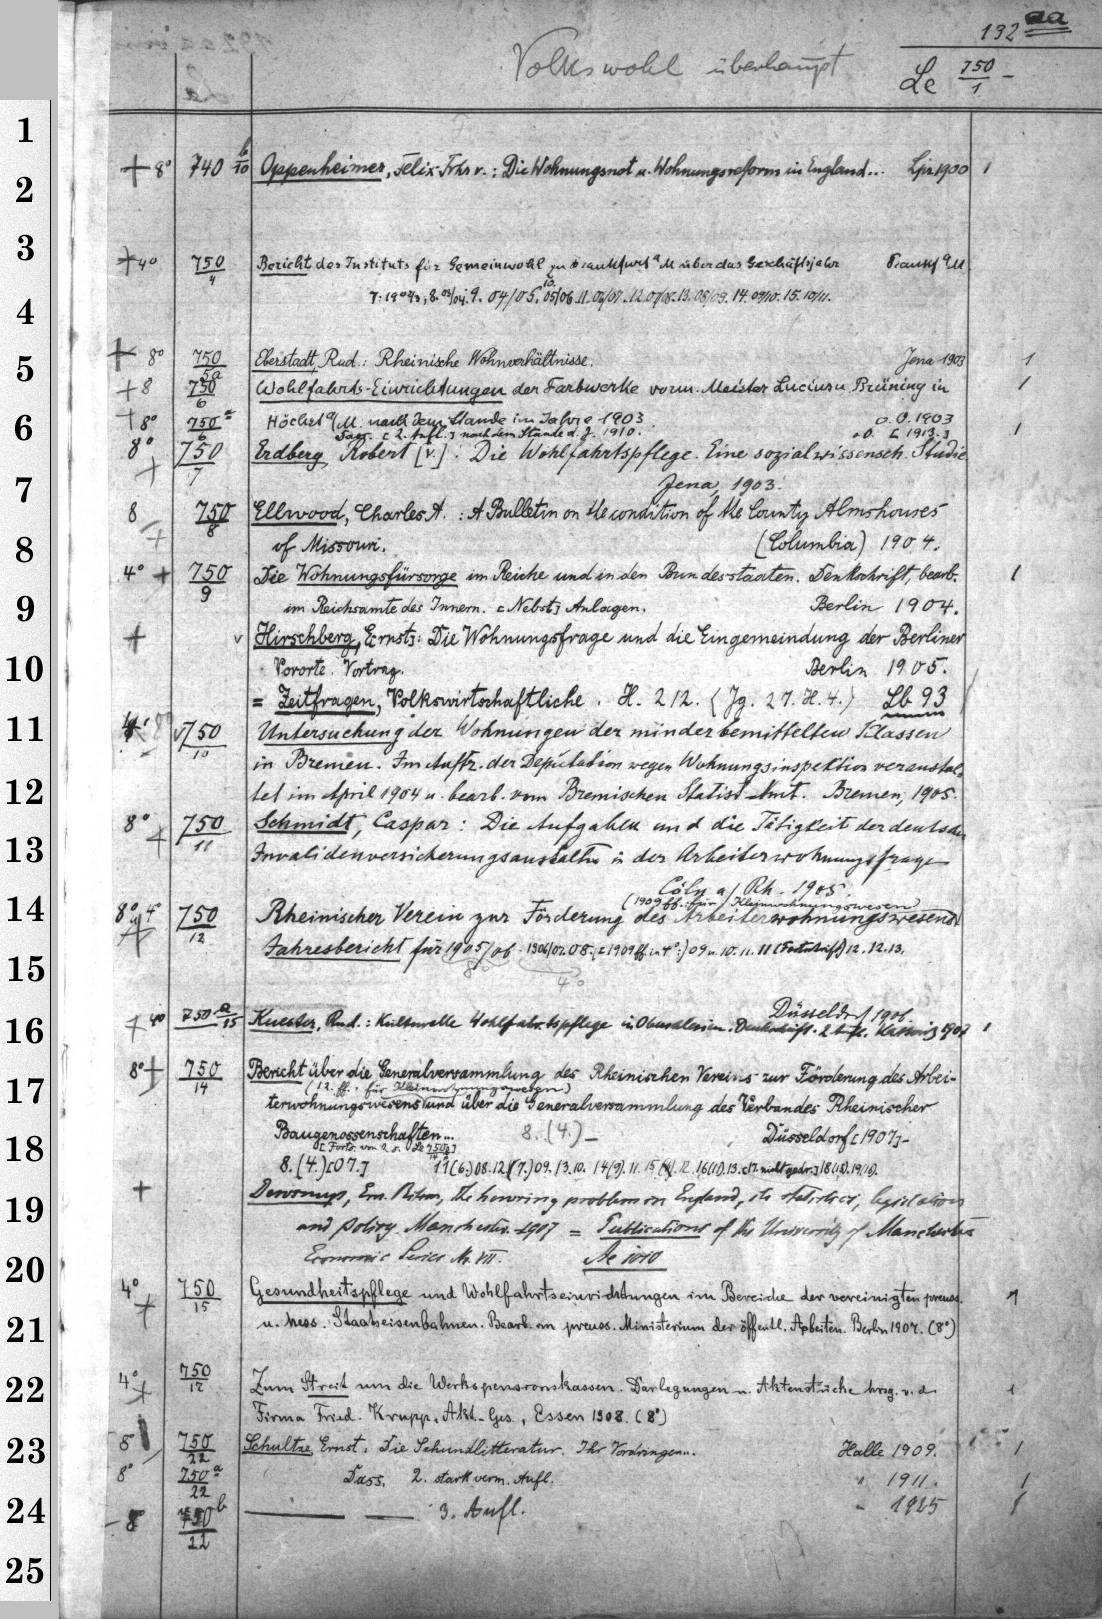 192 aa
Volkswohl überhaupt
Le 750/1 -
1
+ 8° 740 b/10 Oppenheimer, Felix Frhr v.: Die Wohnungsnot u. Wohnungsreform in England... Lpz. 1900 1
2
3
+ 4° 750/4 Bericht des Instituts für Gemeinwohl zu Frankfurt a/M über das Geschäftsjahr Frankf a/M
7. 1902/3, 8. 03/04, 9. 04/05. 10. 05/06. 11. 06/07. 12. 07/08. 13. 08/09. 14. 09/10. 15. 10/11.
4
+ 8° 750/5a Eberstadt, Rud.: Rheinische Wohnverhältnisse. Jena 1903 1
5
+ 8 750/6 Wohlfahrts-Einrichtungen der Farbwerke vorm. Meister Lucius u. Brüning in 1
Höchst a/M. nach dem Stande im Jahre 1903. o. O. 1903
6
+ 8° 750 a/6 Dass. [2. Aufl.] nach dem Stande d. J. 1910. o. O. [1913.] 1
8° + 750/7 Erdberg, Robert [v.]. Die Wohlfahrtspflege. Eine sozialwissensch. Studie
Jena, 1903.
7
8 + 750/8 Ellwood, Charles A. : A Bulletin on the condition of the County Almshouses
of Missouri. (Columbia) 1904.
8
4° + 750/9 Die Wohnungsfürsorge im Reiche und in den Bundesstaaten. Denkschrift, bearb. 1
im Reichsamte des Innern. [Nebst] Anlagen. Berlin 1904.
9
+ v Hirschberg, E[rnst]: Die Wohnungsfrage und die Eingemeindung der Berliner
Vororte. Vortrag. Berlin 1905.
10
= Zeitfragen, Volkswirtschaftliche. H. 212. (Jg. 27. H. 4.) Lb 93
11
750/10 Untersuchung der Wohnungen der minderbemittelten Klassen
in Bremen. Im Auftr. der Deputation wegen Wohnungsinspektion veranstal-
12
tet im April 1904 u. bearb. vom Bremischen Statist. Amt. Bremen, 1905.
8° + 750/11 Schmidt, Caspar: Die Aufgaben und die Tätigkeit der deutschen
13
Invalidenversicherungsanstalten in der Arbeiterwohnungsfrage
Cöln a/Rh. 1905.
(1909 ff.: für Kleinwohnungswesen)
14
8° u 4° + 750/12 Rheinischer Verein zur Förderung des Arbeiterwohnungswesens
Jahresbericht für 1905/06. 1906/07. 08. [1909 ff. in 4°:] 09 u. 10. 11. 11 (Festschrift) 12. 12. 13.
15
4°
Düsseldorf 1906.
16
+ 4° 750 a/15 Kuester, Rud.: Kulturelle Wohlfahrtspflege in Oberschlesien. Denkschrift. 2. Kattowitz 1907 1
8° + 750/14 Bericht über die Generalversammlung des Rheinischen Vereins zur Förderung des Arbei-
17
(12. ff.: für Kleinwohnungswesen)
terwohnungswesens und über die Generalversammlung des Verbandes Rheinischer
Baugenossenschaften... 8. (4.) - Düsseldorf [1907] -
18
8. (4.) [07.] 11 (6.) 08. 12 (7.) 09. 13. 10. 14 (9). 11. 15. 12. 16 (11). 13. [17. nicht gedr.] 18 (13). 19 (14).
19
+ Dewsnup, Ern. Ritson, the housing problem in England, its statistics, legislation
and policy. Manchester. 1907 = Publications of the University of Manchester
Economic Series Nr. VII. Ae 1010
20
4° + 750/15 Gesundheitspflege und Wohlfahrtseinrichtungen im Bereiche der vereinigten preuss. 1
21
u. hess. Staatseisenbahnen. Bearb. im preuss. Ministerium der öffentl. Arbeiten. Berlin 1907. (8°)
22
4° + 750/17 Zum Streit um die Werkspensionskassen. Darlegungen u. Aktenstücke hrsg. v. d. 1
Firma Fried. Krupp, Akt.-Ges., Essen 1908. (8°)
23
8 750/22 Schultze, Ernst. Die Schundlitteratur. Ihr Vordringen... Halle 1909. 1
8° 750 a/22 Dass. 2. stark verm. Aufl. " 1911. 1
24
8 750 b/22 3. Aufl. " 1925 1
25